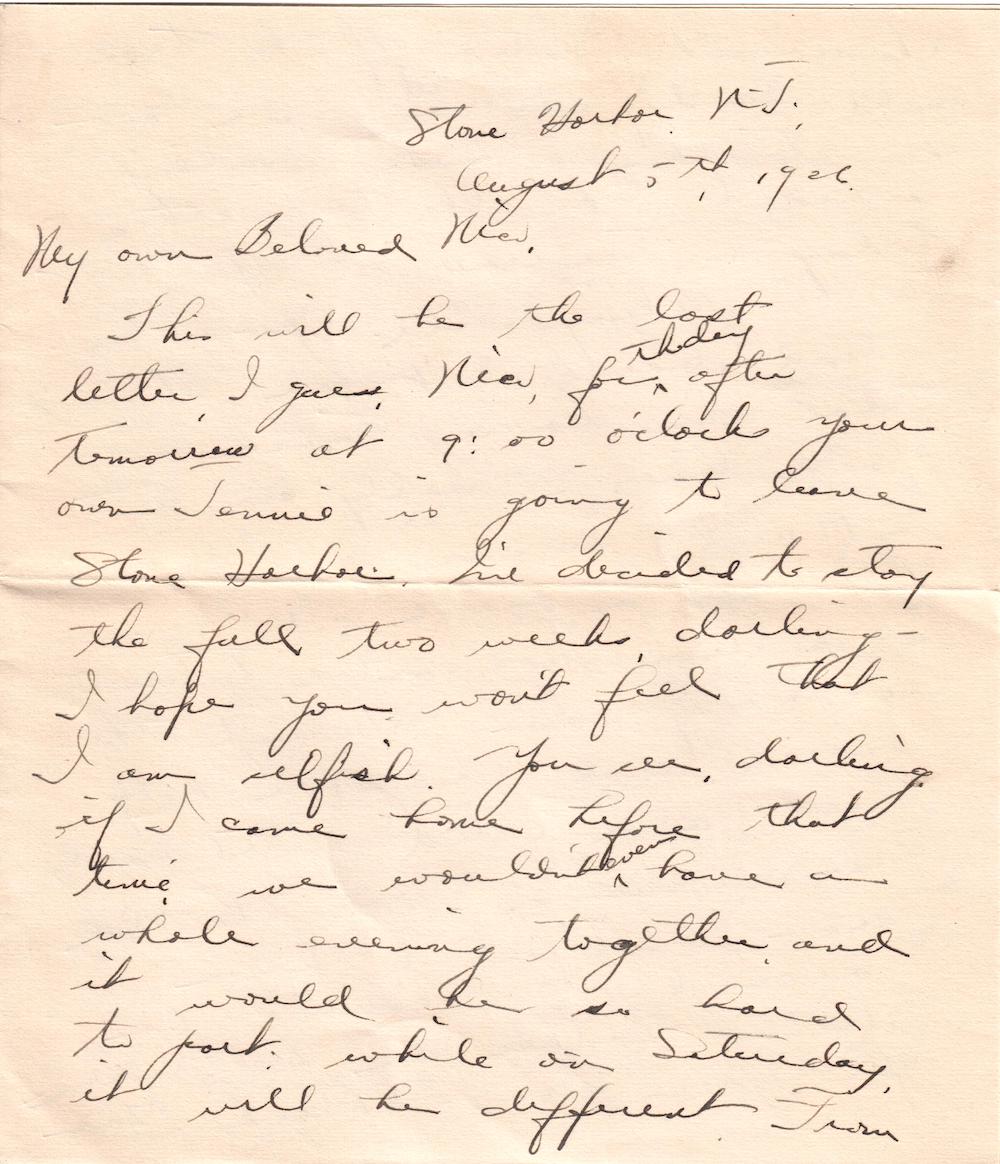 Stone Harbor, N.J.,
August 5th, 1926.
My own Beloved Nico,
This will be the last
letter, I guess, Nico, for the day after
tomorrow at 9:00 o'clock your
own Jennie is going to leave
Stone Harbor. I've decided to stay
the full two weeks, darling -
I hope you won't feel that
I am selfish. You see, darling,
if I came home before that
time, we wouldn't even have a
whole evening together, and
it would be so hard
to part, while on Saturday,
it will be different. From